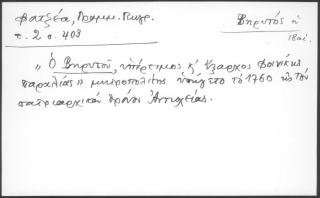 Φατζέα, Γραμμ. Γεωγρ.
τ. 2 σ. 409
Βηρυτός ἡ
18 αἰ.
"ὁ Βηρυτοῦ, ὑπέρτιμος κ' ἔξαρχος Φοινίκης
παραλίας" μητροπολίτης ὑπάγεται τὸ 1760 ὑπὸ τὸν
πατριαρχικὸν θρόνον Ἀντιοχείας.